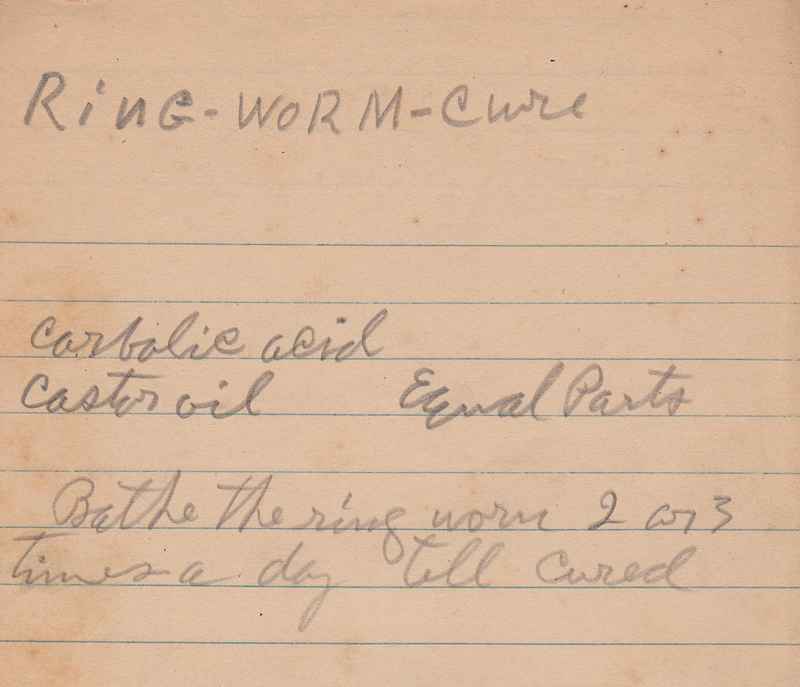 RinG-WORM-Cure
Carbolic acid
Castor oil Equal Parts
Bathe the ring worm 2 or 3
times a day till cured